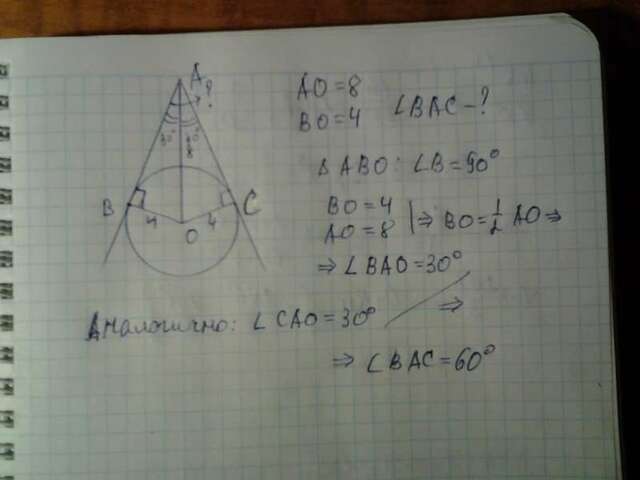 A
?
30° 30°
8
B C
4 4
O
AO = 8
BO = 4 ∠BAC - ?
Δ ABO: ∠B = 90°
BO = 4
AO = 8 | ⇒ BO = 1/2 AO ⇒
⇒ ∠BAO = 30°
Аналогично: ∠CAO = 30° ⇒
⇒ ∠BAC = 60°